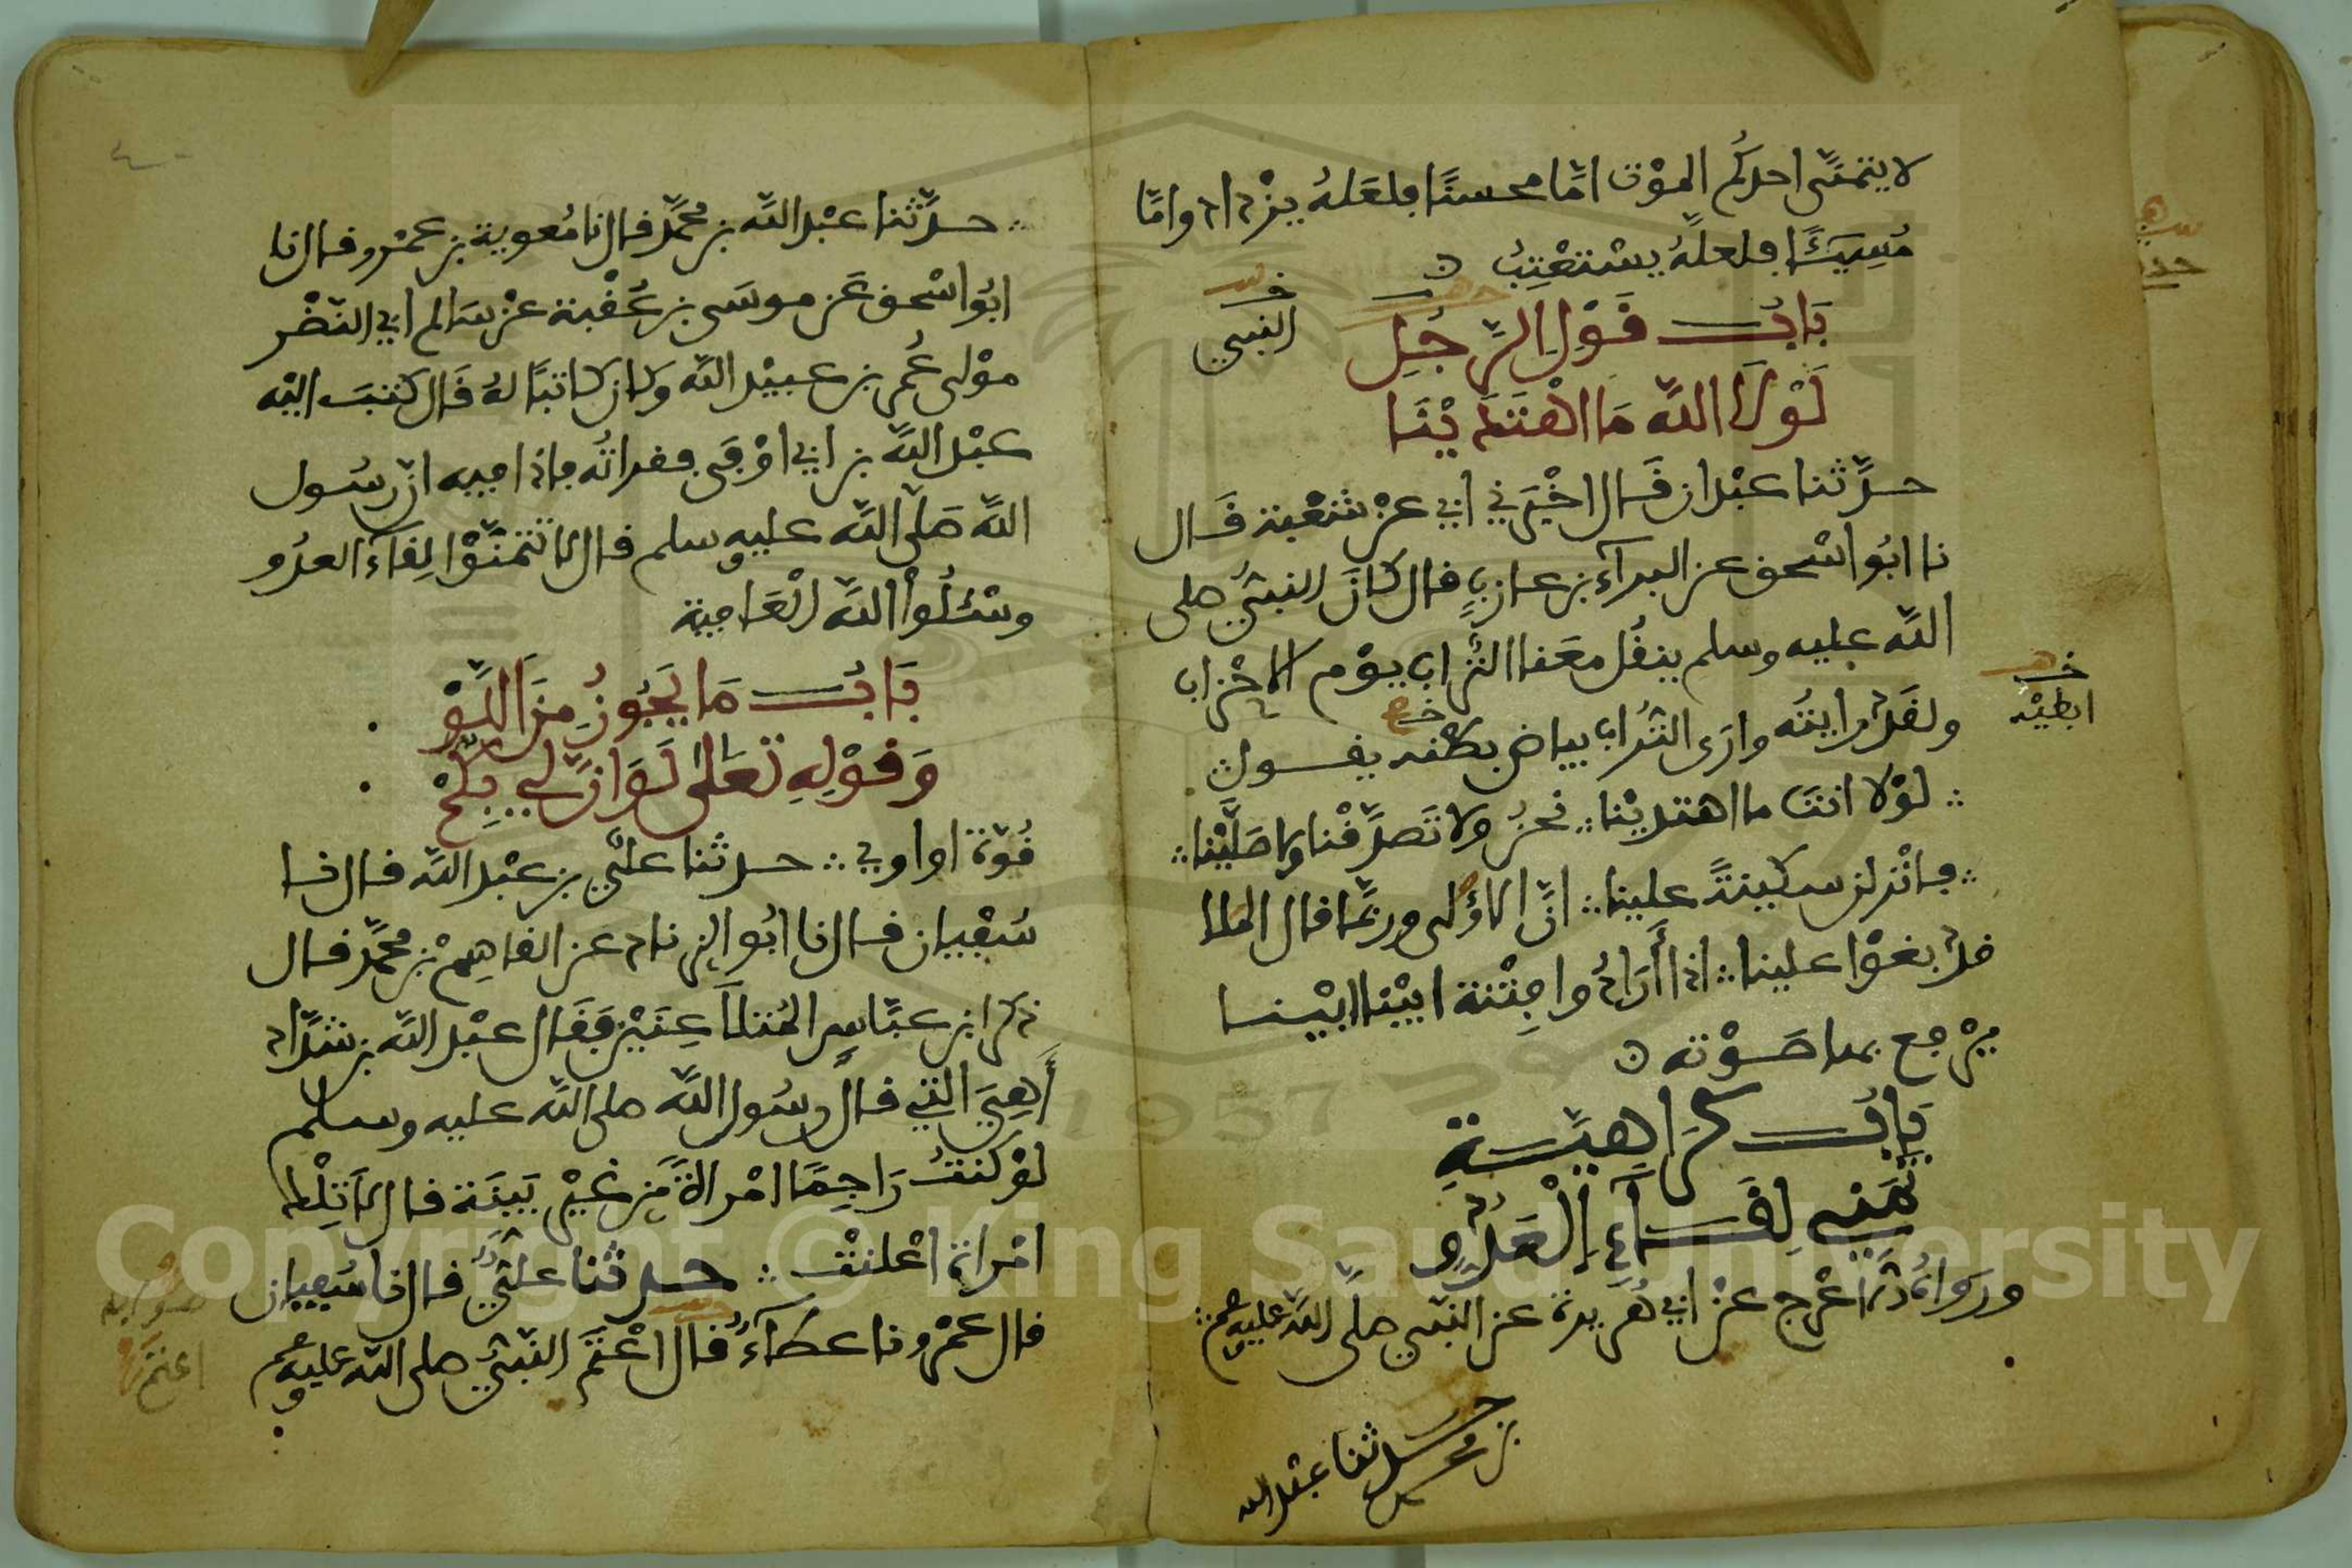 لا يتمنى احدكم الموت امّا محسنًا فلعله يزداد وامّا
مسيئًا فلعلّه يستعتب
بَابُ قَوْلِ الرَّجُلِ
النبي
لَوْلَا اللّه مَا اهْتَدَيْنَا
حدّثنا عبْدان قَال اخْبَرَني ابي عنْ شعْبة قَال
نا ابُو اسْحق عن البرآء بن عازبٍ قال كانَ النبيُّ صلى
اللّه عليه وسلم ينقُل معَنا التُّراب يوْم الاحْزاب
ولقَدْ رايتُه وارَى التُّراب بياض بطْنه يقول
ابطيْه
لوْلا انتَ ما اهتديْنا نحنُ ولا تَصدّقْنا ولا صَلَّيْنا
فانْزلن سكينةً علينا انّ الاُولى وربّما قال الملا
قدْ بغوْا علينا اذا أَرَادُوا فِتْنة ابيْنا ابيْنا
يرْفع بها صَوْته
بَابُ كَرَاهِيَةِ
تَمَنِّي لِقَآءِ الْعَدُوِّ
ورَوَاهُ الاعْرج عنْ ابي هُريرة عن النّبي صلّى اللّه عليه وسلم
حدثنا عبْد الله
بن محمد
حدّثنا عبْد اللّه بن محُمّد قال نا مُعوية بن عمْرو قال نا
ابُو اسْحق عَن موسَى بن عُقْبة عنْ سَالم ابي النّضْر
موْلى عُمر بن عبيْد اللّه وكان كاتبًا لهُ قَال كتبَ اليْه
عبْد اللّه بن ابي اوْفى فقراتُه فاذا فيه انّ رسُول
اللّه صَلى اللّه عليه وسلم قال لا تتمنّوْا لِقآء العدُو
وسْئلُوا اللّه الْعَافية
بَابُ مَا يَجُوزُ مِنَ اللَّوْ
وَقوْلِهِ تعَالى لَوَ انّ لِي بِكمْ
قُوّة او اوي حدثنا عليّ بن عبْد اللّه قال نا
سُفْيان قال نا ابُو الزناد عن القاسِم بْن محمّد قال
ذكر ابن عبّاسٍ المُتلاَعِنَيْن فَقَال عبْد اللّه بن شدّاد
أَهِيَ التي قال رسُول اللّه صلى اللّه عليه وسلم
لوْ كنتُ رَاجِمًا امْراةً مّن غيْر بَيّنَة قال لاَ تِلْك
امْراة اعْلنتْ حدثنا عليٌّ قال نا سُفيان
قال عمْرو نا عطآءٌ قال اعْتَمَ النّبيُّ صلى اللّه عليه وسلم
صوابه
اعتَمَ